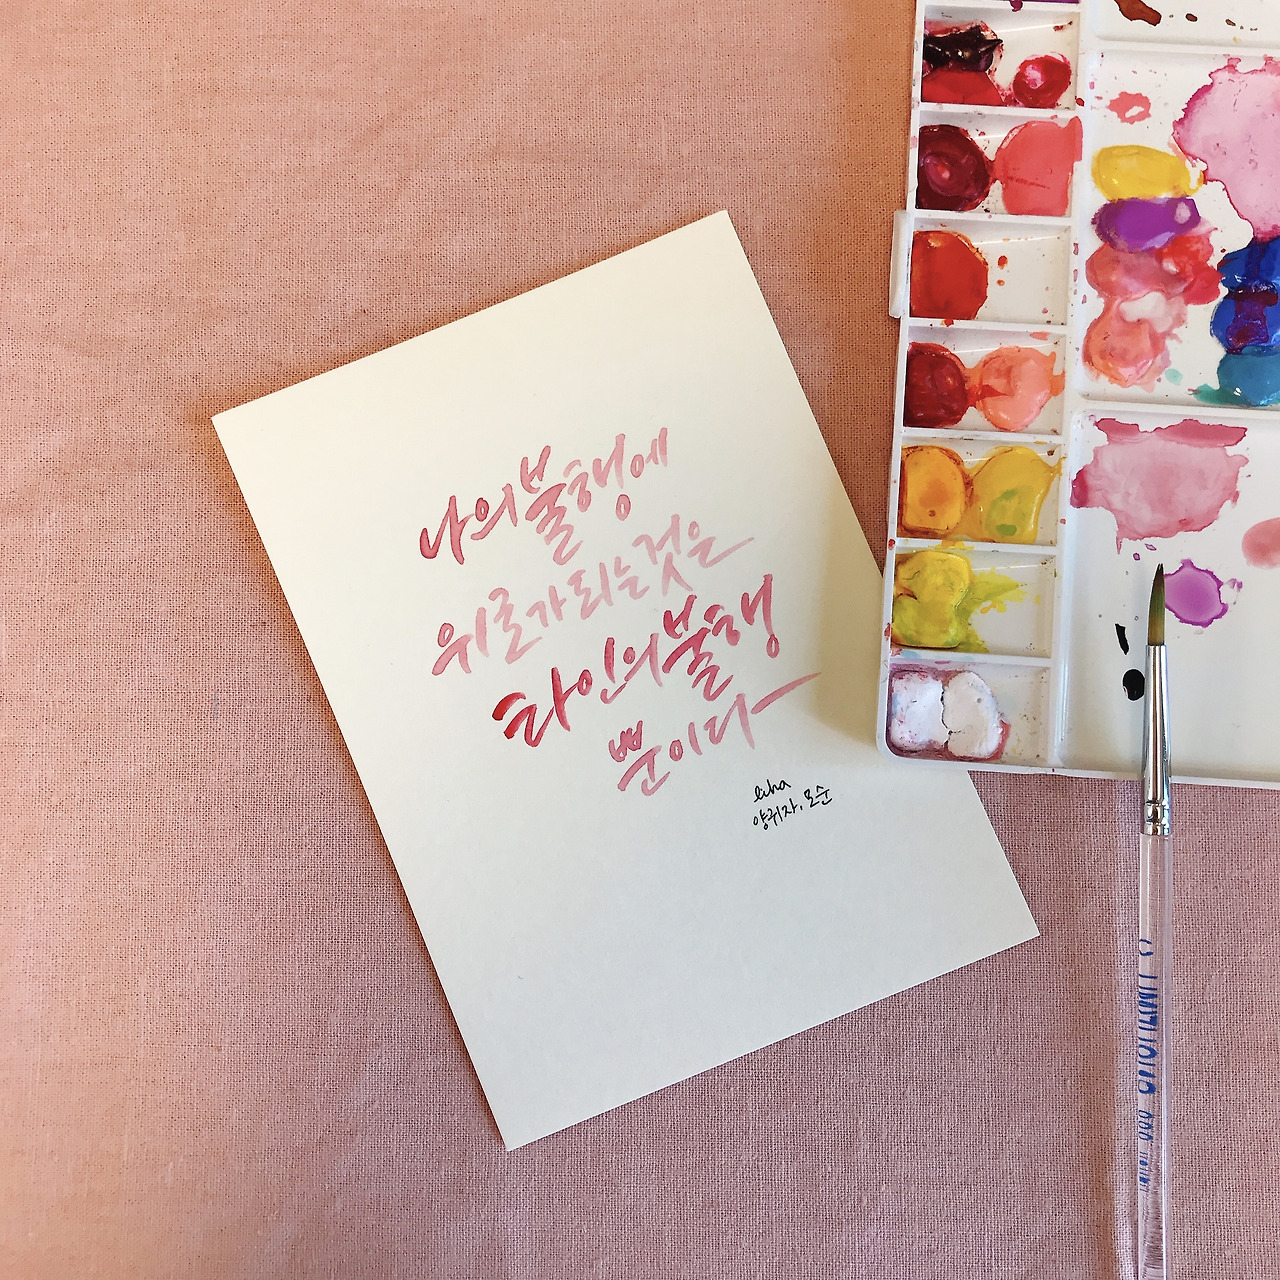 나의 불행에
위로가 되는 것은
타인의 불행
뿐이다
echa
양귀자, 모순